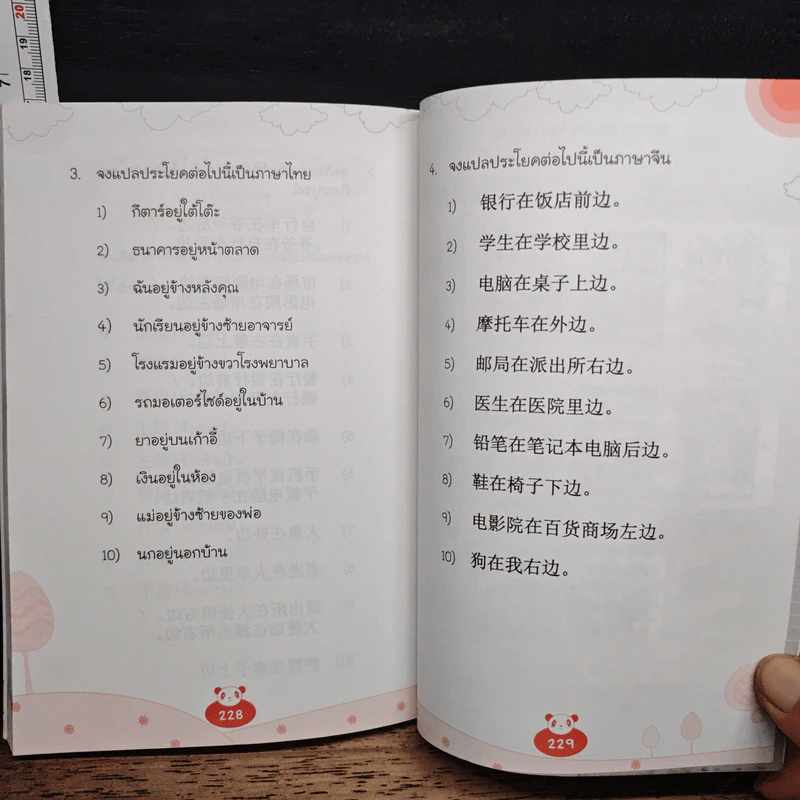 20
19
18
7
3. จงแปลประโยคต่อไปนี้เป็นภาษาไทย
1) กีตาร์อยู่ใต้โต๊ะ
2) ธนาคารอยู่หน้าตลาด
3) ฉันอยู่ข้างหลังคุณ
4) นักเรียนอยู่ข้างซ้ายอาจารย์
5) โรงแรมอยู่ข้างขวาโรงพยาบาล
6) รถมอเตอร์ไซด์อยู่ในบ้าน
7) ยาอยู่บนเก้าอี้
8) เงินอยู่ในห้อง
9) แม่อยู่ข้างซ้ายของพ่อ
10) นกอยู่นอกบ้าน
228
4. จงแปลประโยคต่อไปนี้เป็นภาษาจีน
1) 银行在饭店前边。
2) 学生在学校里边。
3) 电脑在桌子上边。
4) 摩托车在外边。
5) 邮局在派出所右边。
6) 医生在医院里边。
7) 铅笔在笔记本电脑后边。
8) 鞋在椅子下边。
9) 电影院在百货商场左边。
10) 狗在我右边。
229